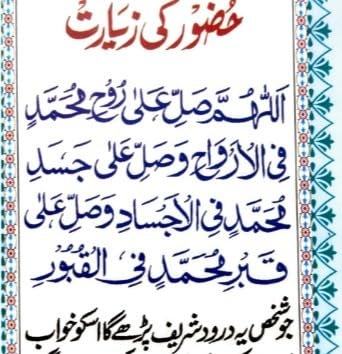 حضور کی زیارت
اَللّٰهُمَّ صَلِّ عَلىٰ رُوْحِ مُحَمَّدٍ
فِي الْاَرْوَاحِ وَصَلِّ عَلىٰ جَسَدِ
مُحَمَّدٍ فِي الْاَجْسَادِ وَصَلِّ عَلىٰ
قَبْرِ مُحَمَّدٍ فِي الْقُبُوْرِ
جو شخص یہ درود شریف پڑھے گا اسکو خواب